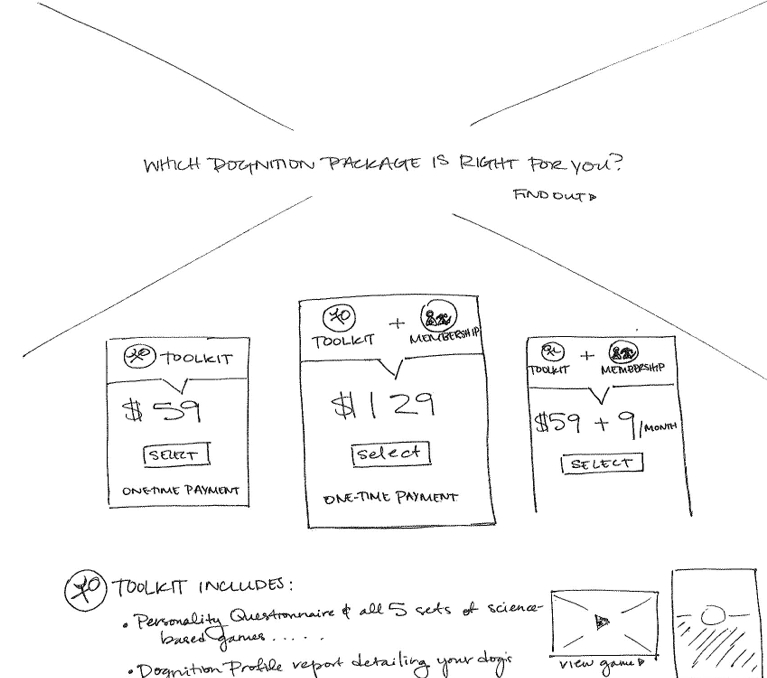 WHICH DOGNITION PACKAGE IS RIGHT FOR YOU?
FIND OUT
TOOLKIT
$59
SELECT
ONE-TIME PAYMENT
TOOLKIT + MEMBERSHIP
$129
select
ONE-TIME PAYMENT
TOOLKIT + MEMBERSHIP
$59 + 9/MONTH
SELECT
TOOLKIT INCLUDES:
• Personality Questionnaire & all 5 sets of science-
based games.....
• Dognition Profile report detailing your dog's
view game